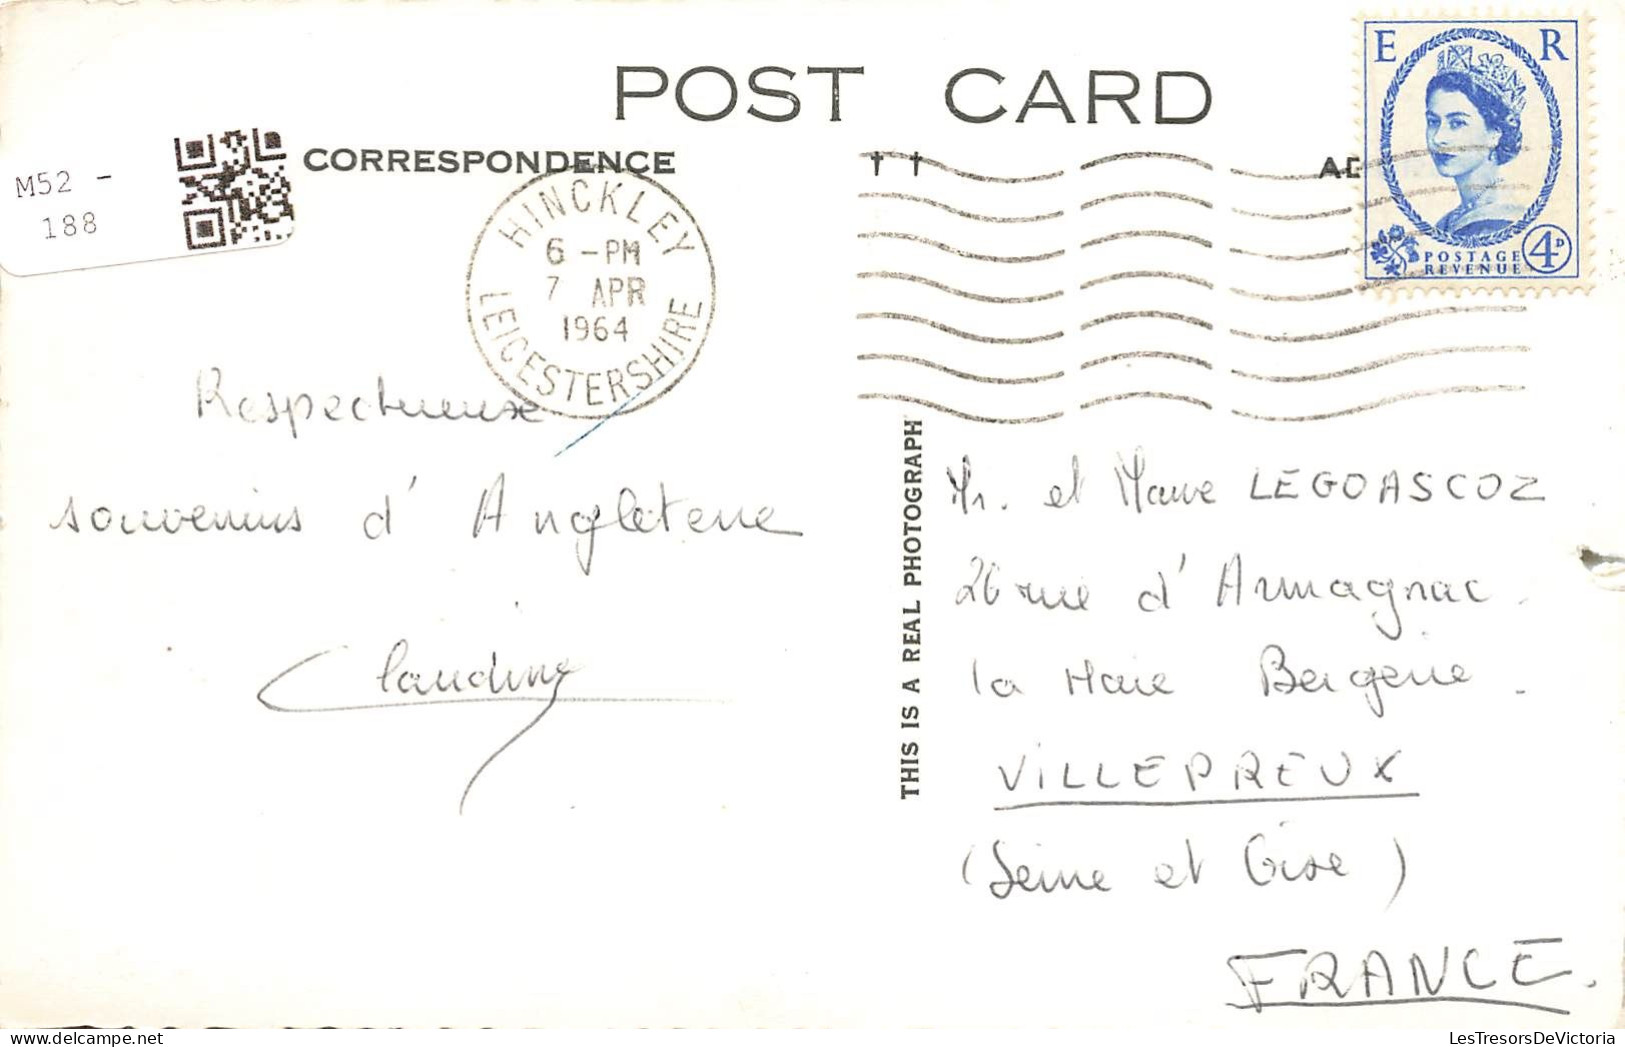 POST CARD
E R
M52 -
188
CORRESPONDENCE
HINCKLEY
6 - PM
7 APR
1964
LEICESTERSHIRE
POSTAGE
REVENUE
4D
Respectueux
souvenirs d'Angleterre
Claudine
THIS IS A REAL PHOTOGRAPH
Mr. et Mme LEGOASCOZ
26 rue d'Armagnac
la Haie Bergerie
VILLEPREUX
(Seine et Oise)
FRANCE.
LesTresorsDeVictoria